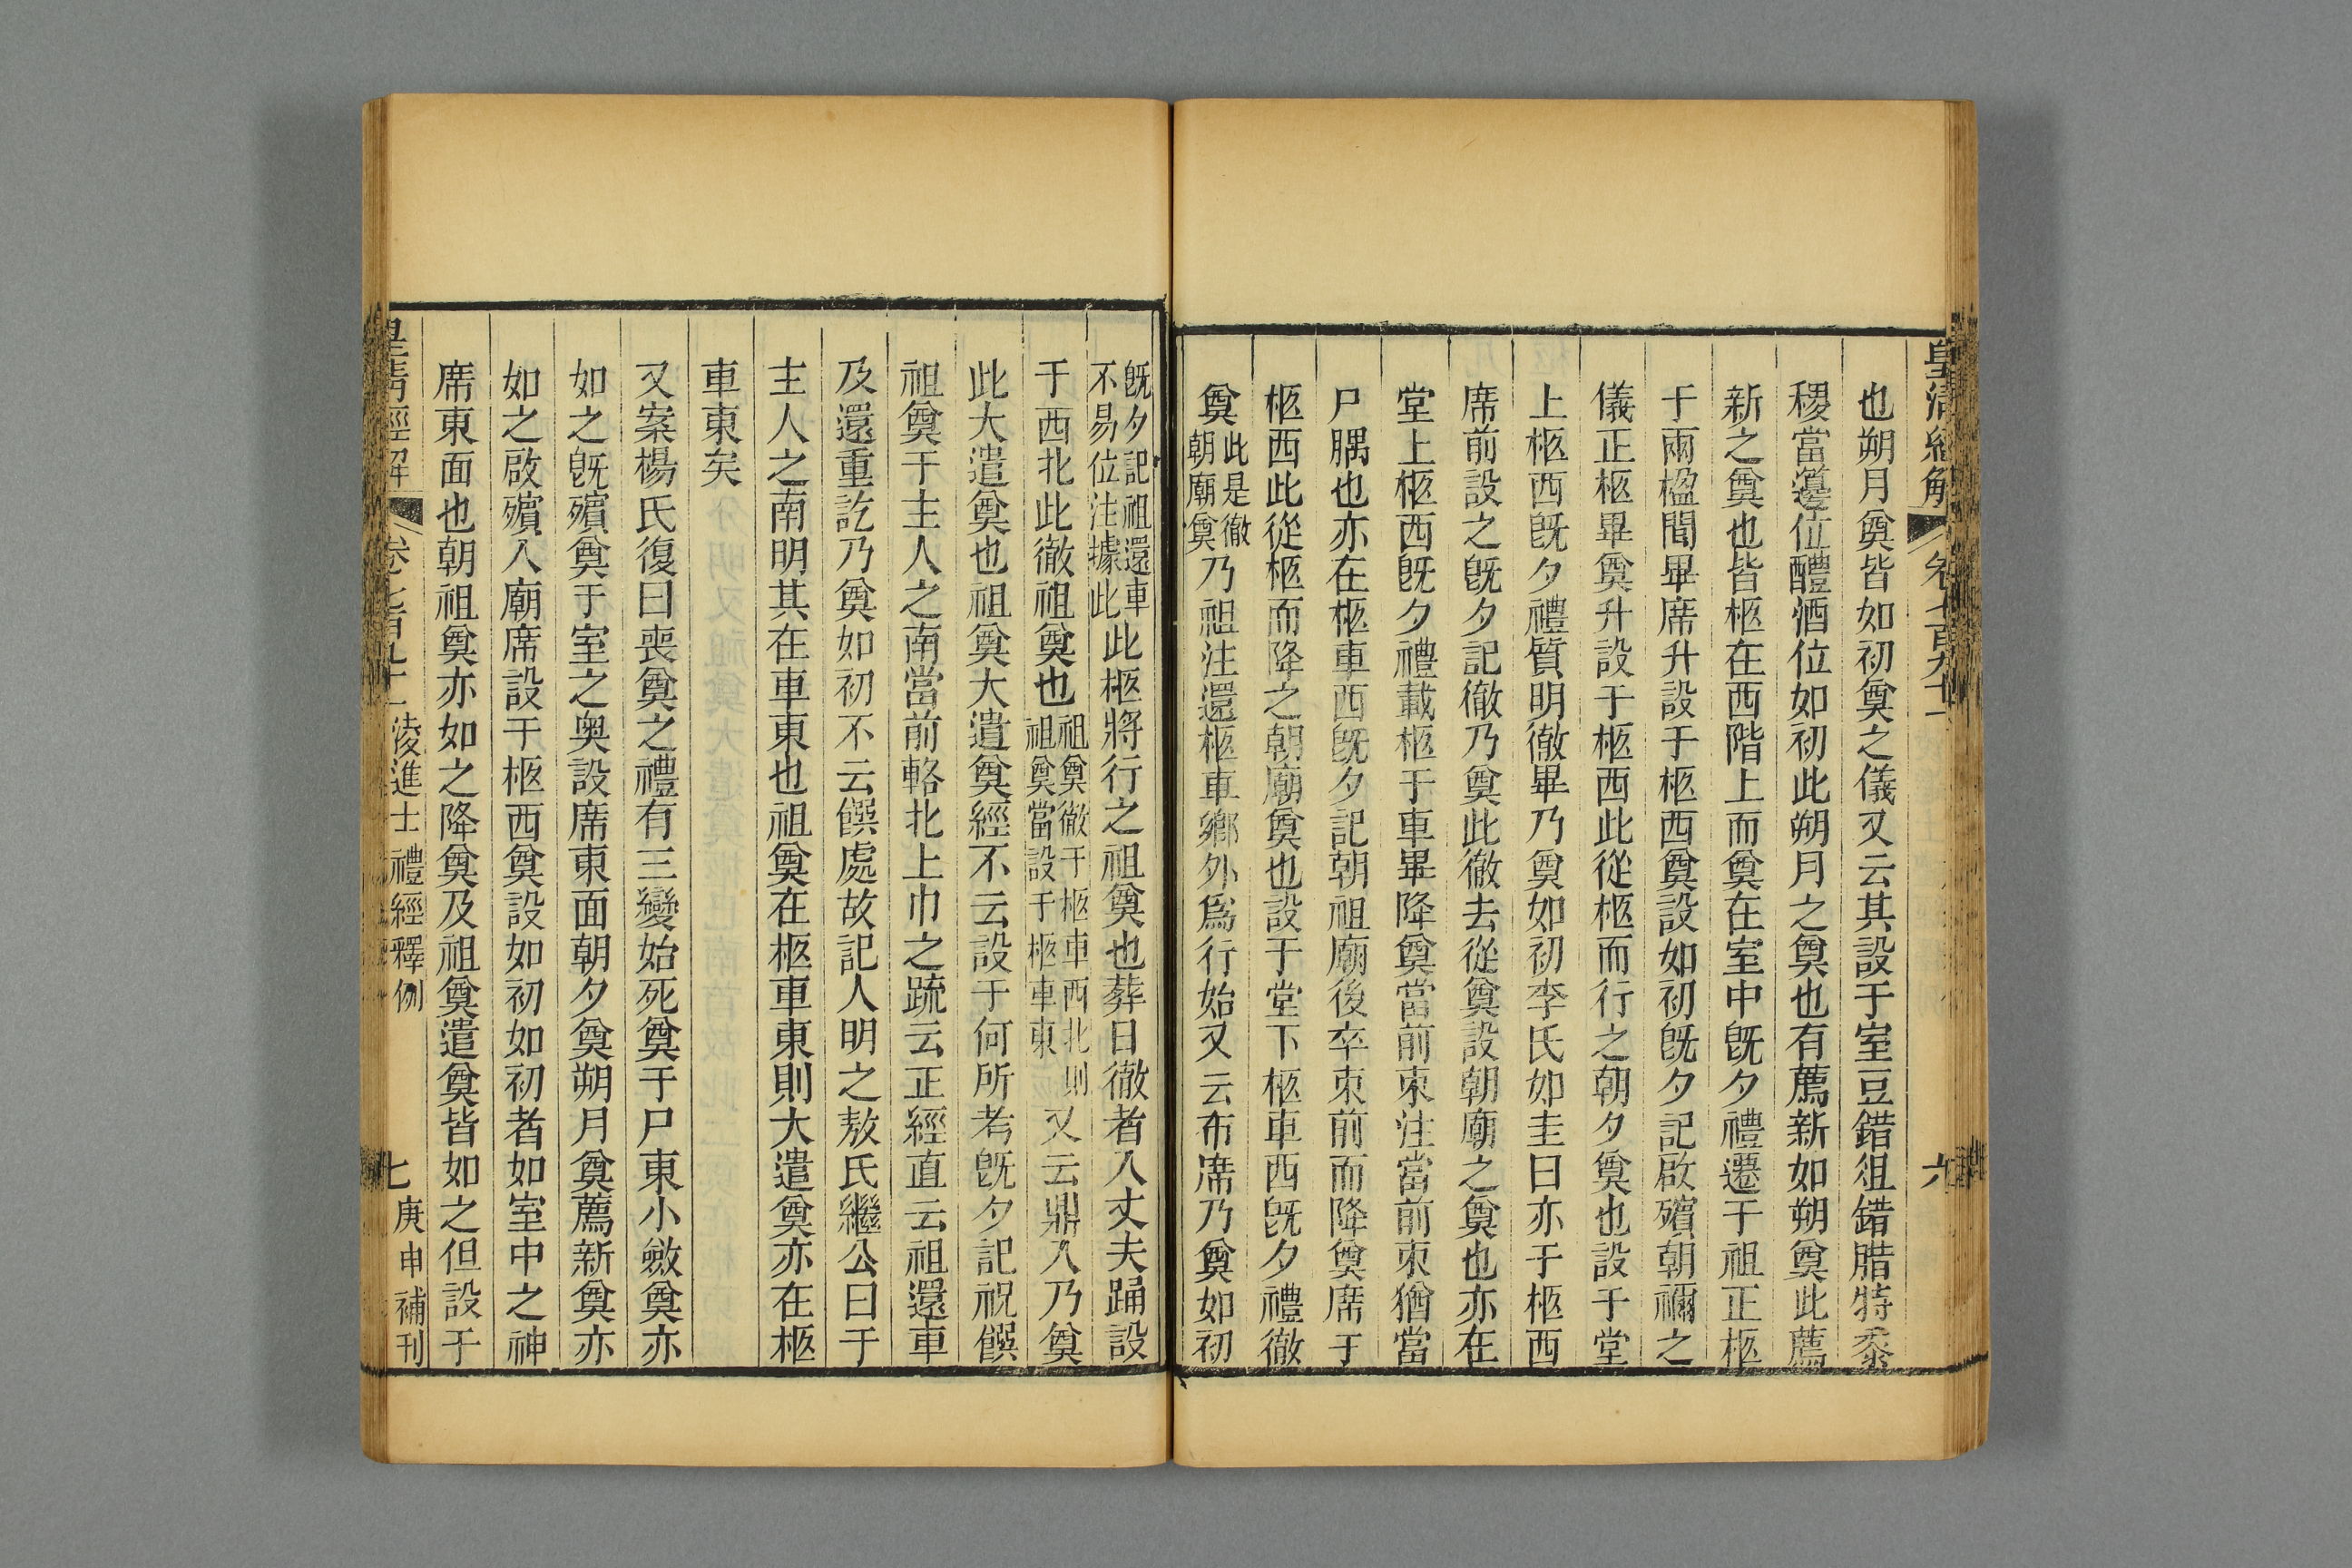 皇清經解
六
也朔月奠皆如初奠之儀又云其設于室豆錯俎錯腊特黍
稷當籩位醴酒位如初此朔月之奠也有薦新如朔奠此薦
新之奠也皆柩在西階上而奠在室中旣夕禮遷于祖正柩
于兩楹閒畢席升設于柩西奠設如初旣夕記啟殯朝禰之
儀正柩畢奠升設于柩西此從柩而行之朝夕奠也設于堂
上柩西旣夕禮質明徹畢乃奠如初李氏如圭曰亦于柩西
席前設之旣夕記徹乃奠此徹去從奠設朝廟之奠也亦在
堂上柩西旣夕禮載柩于車畢降奠當前束注當前束猶當
尸腢也亦在柩車西旣夕記朝祖廟後卒束前而降奠席于
柩西此從柩而降之朝廟奠也設于堂下柩車西旣夕禮徹
奠此是徹朝廟奠乃祖注還柩車鄉外爲行始又云布席乃奠如初
旣夕記祖還車不易位注據此此柩將行之祖奠也葬日徹者入丈夫踊設
于西北此徹祖奠也祖奠徹于柩車西北則祖奠當設于柩車東又云鼎入乃奠
此大遣奠也祖奠大遣奠經不云設于何所考旣夕記祝饌
祖奠于主人之南當前輅北上巾之疏云正經直云祖還車
及還重訖乃奠如初不云饌處故記人明之敖氏繼公曰于
主人之南明其在車東也祖奠在柩車東則大遣奠亦在柩
車東矣
又案楊氏復曰喪奠之禮有三變始死奠于尸東小斂奠亦
如之旣殯奠于室之奧設席東面朝夕奠朔月奠薦新奠亦
如之啟殯入廟席設于柩西奠設如初如初者如室中之神
席東面也朝祖奠亦如之降奠及祖奠遣奠皆如之但設于
皇清經解
凌進士禮經釋例
七
庚申補刊